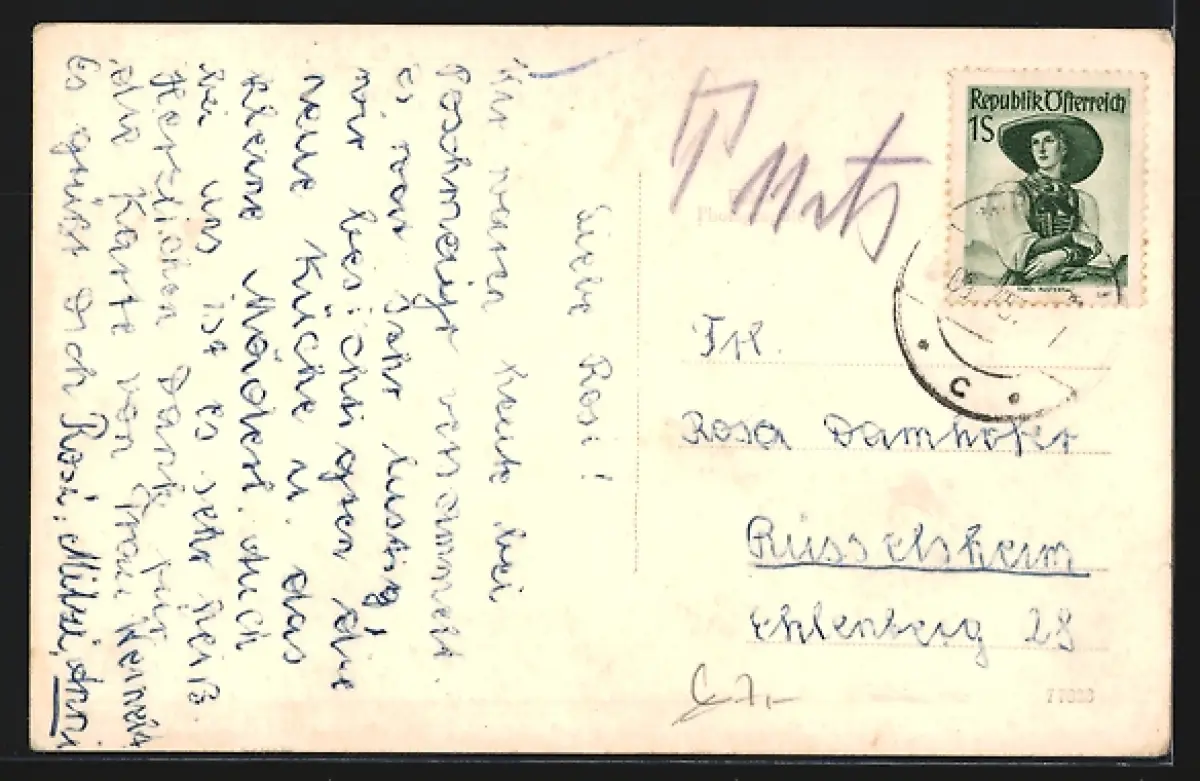 Liebe Rosi!
Wir waren heute bei
Poschmair versammelt
es war sehr lustig,
wir besichtigen die
neue Küche u. das
kleine Mäderl. Auch
bei uns ist es sehr heiß.
Herzlichen Dank für
die Karte von Frau
Es grüßt Dich Rosi, Mitzi,
Republik Österreich
1S
Frl.
Rosa Damhofer
Rüsselsheim
Ehlenberg 28
C